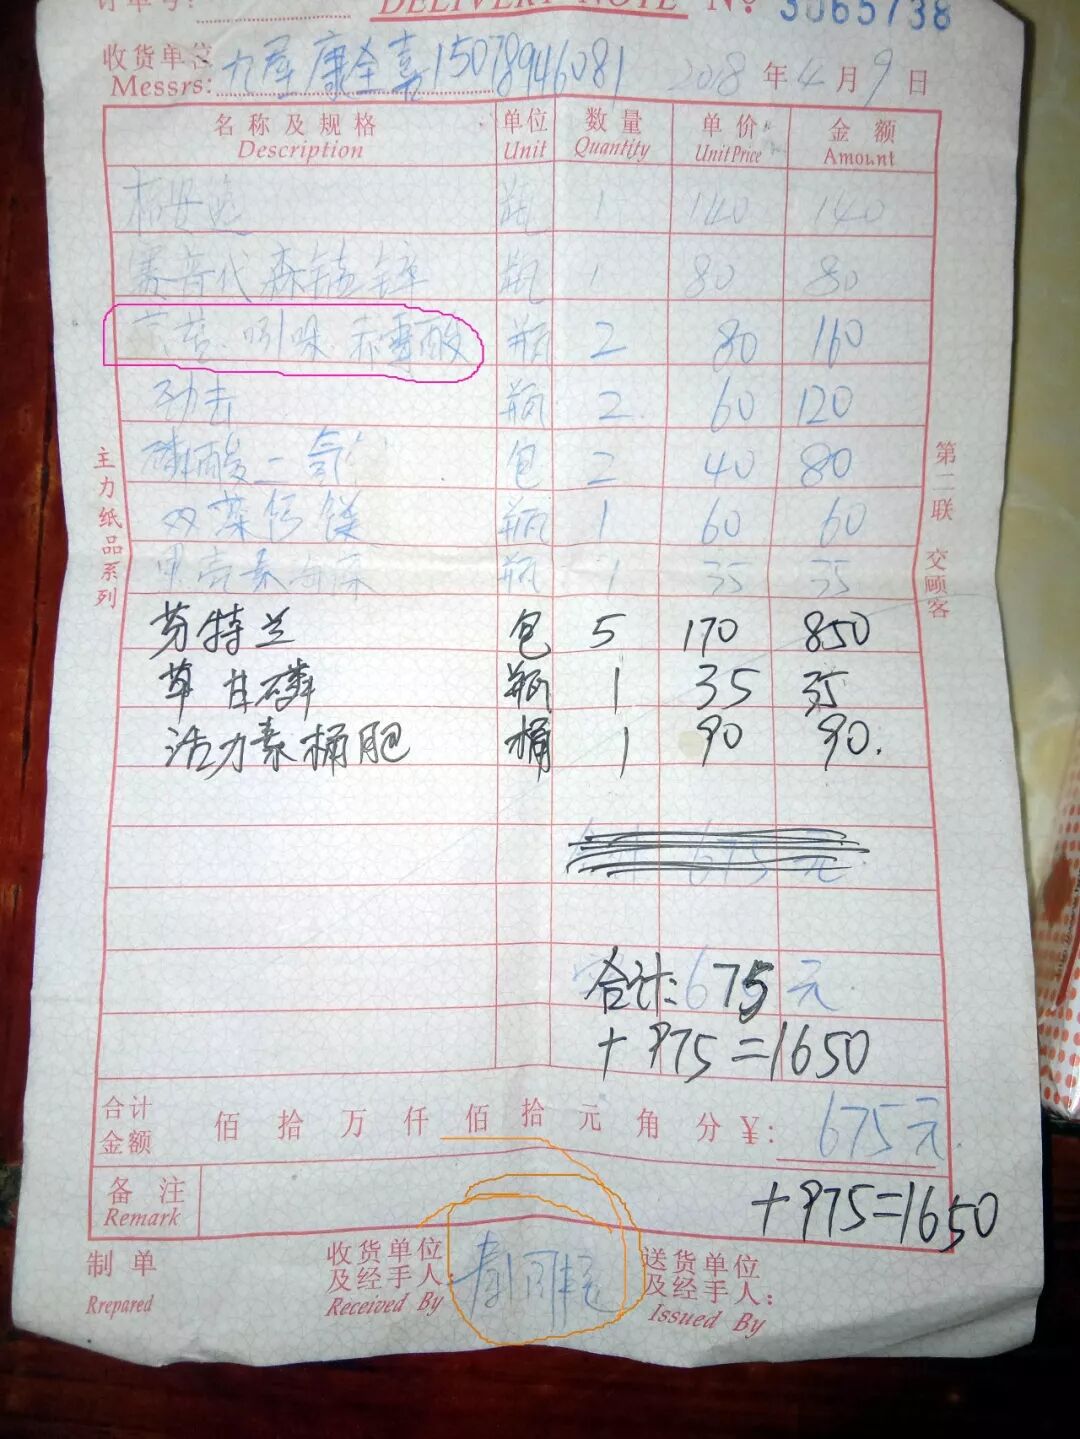 订单号:
DELIVERY NOTE № 3065738
收货单位 九屋 康全喜 15078946081 2018 年 4 月 9 日
Messrs:
名称及规格 单位 数量 单价 金额
Description Unit Quantity Unit Price Amount
瓶 1 140 140
赛音代森锰锌 瓶 1 80 80
吲哚 赤霉酸 瓶 2 80 160
劲去 瓶 2 60 120
磷酸二氢 包 2 40 80
双藻钙镁 瓶 1 60 60
甲壳素海藻 瓶 1 35 35
芬特兰 包 5 170 850
草甘磷 瓶 1 35 35
活力素桶肥 桶 1 90 90.
主力纸品系列
第二联 交顾客
675 元
合计: 675 元
+ 975 = 1650
合计金额 佰 拾 万 仟 佰 拾 元 角 分 ¥: 675元
备注
Remark
+ 975=1650
制单 收货单位及经手人: 送货单位及经手人:
Rrepared Received By Issued By